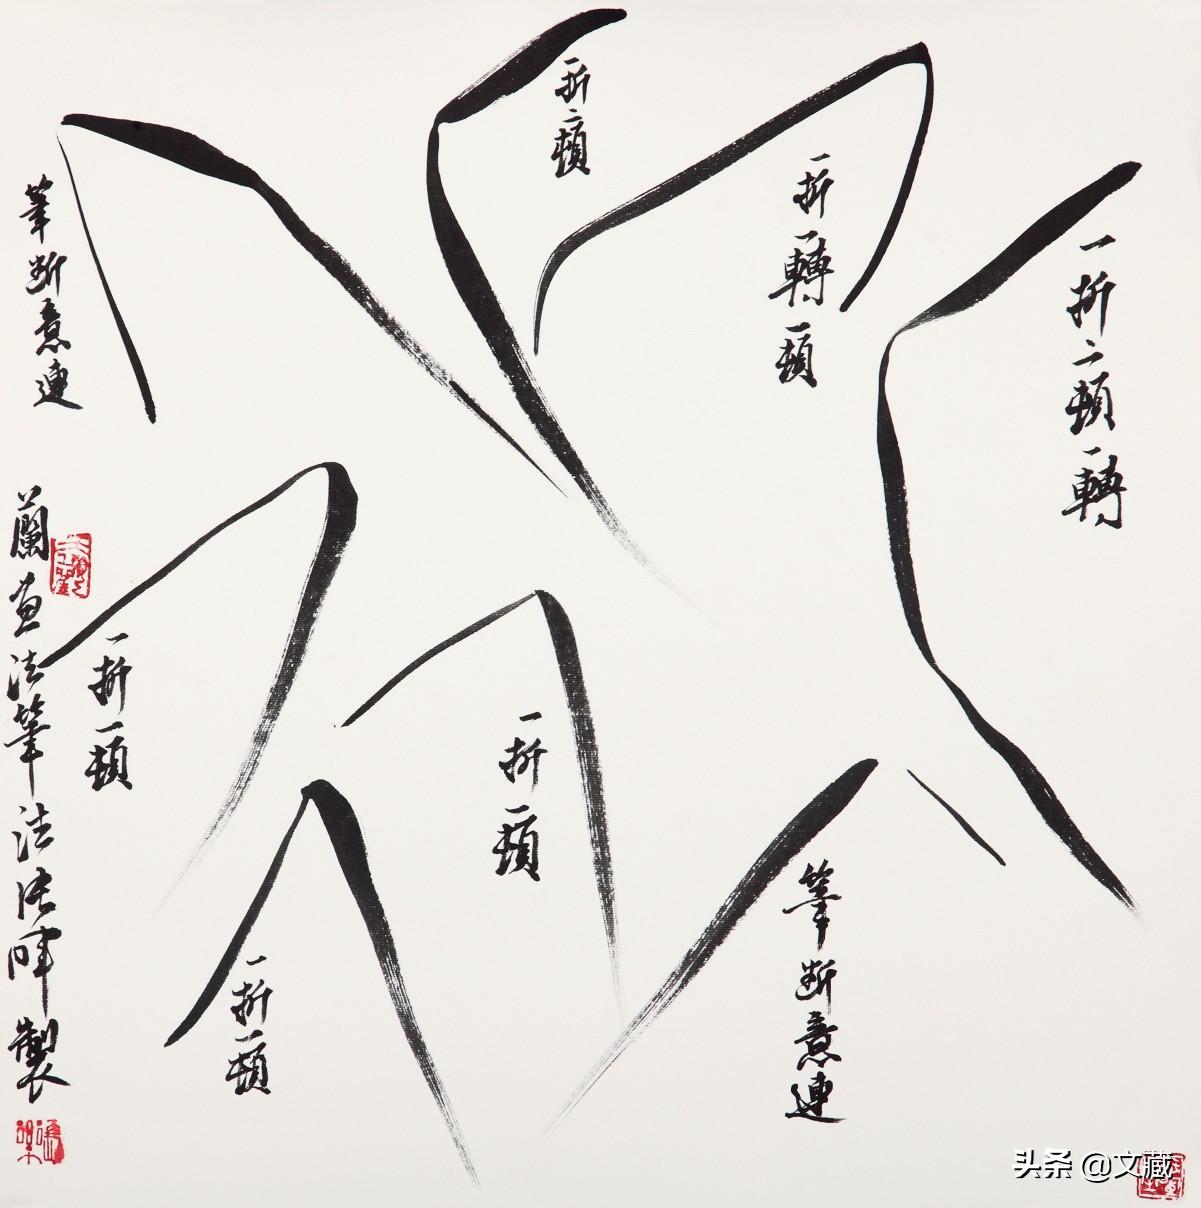 一折二頓一轉
一折一轉一頓
一折二頓
筆斷意連
筆斷意連
一折一頓
一折一頓
一折一頓
蘭画法筆法暉製
头条 @文藏